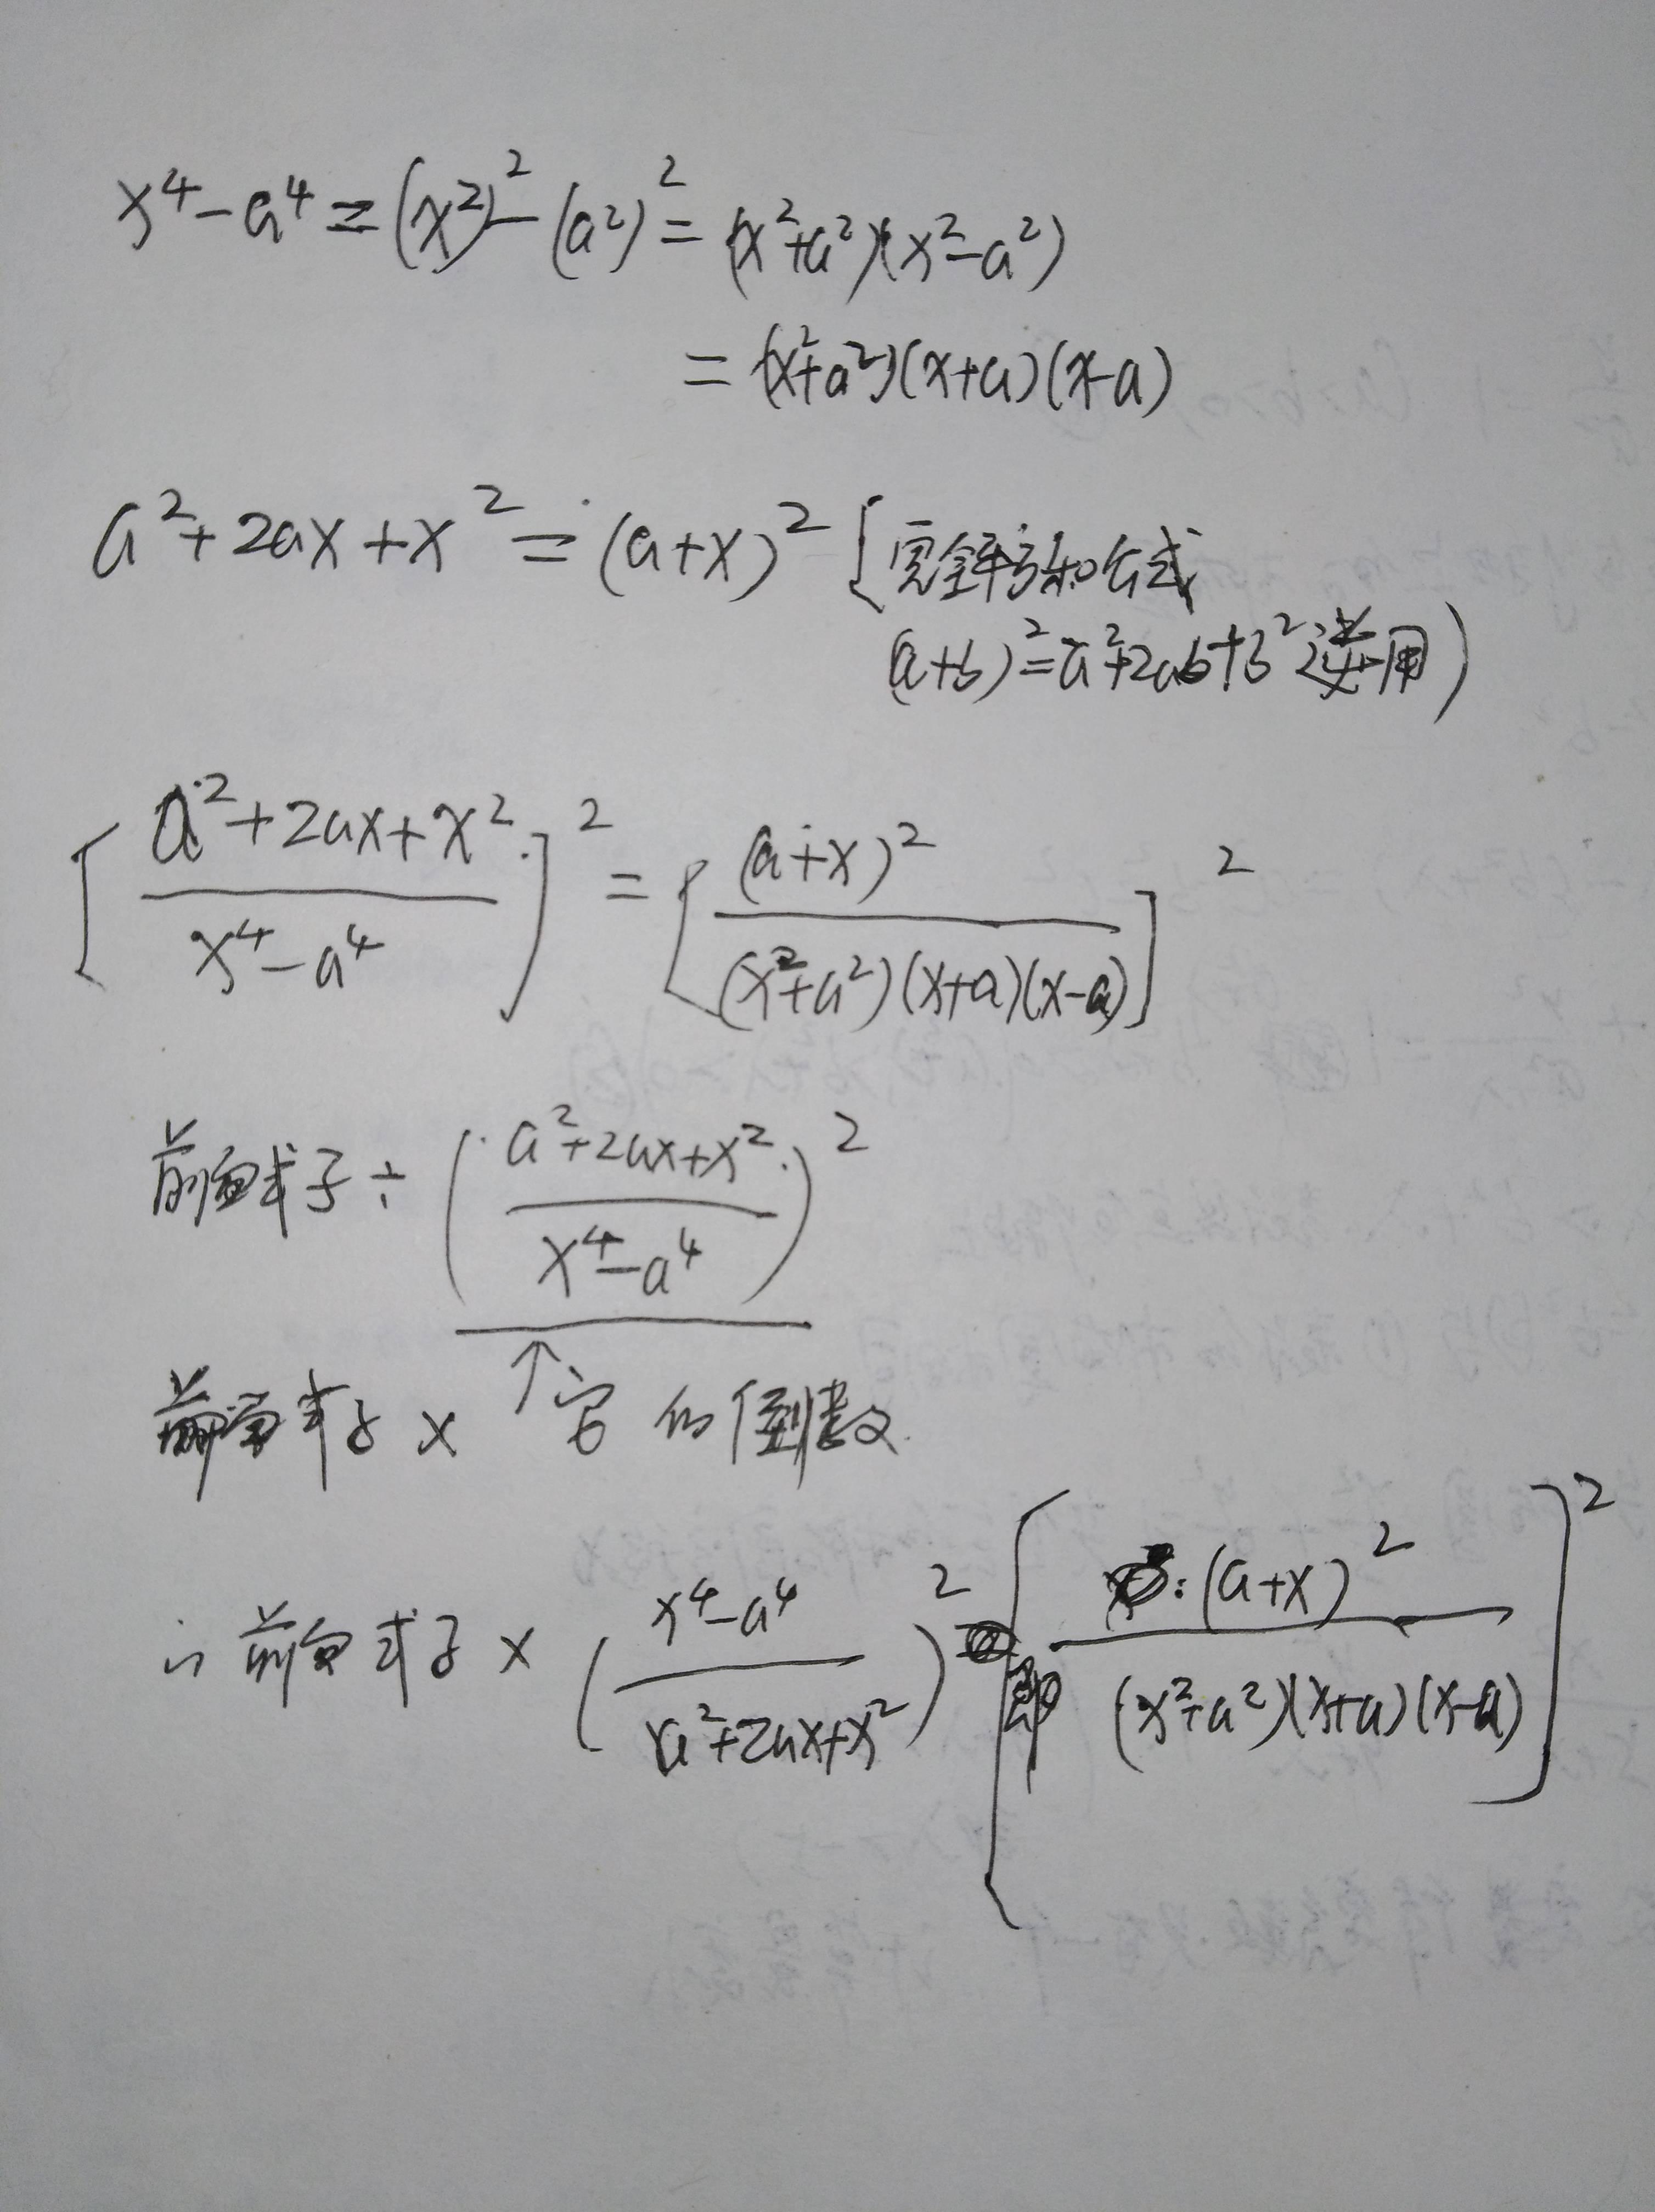 x⁴-a⁴=(x²)²-(a²)²=(x²+a²)(x²-a²)
=(x²+a²)(x+a)(x-a)
a²+2ax+x²=(a+x)² [完全平方和公式
(a+b)²=a²+2ab+b²逆用)
[(a²+2ax+x²)/(x⁴-a⁴)]²=[(a+x)²/((x²+a²)(x+a)(x-a))]²
前面式子÷((a²+2ax+x²)/(x⁴-a⁴))²
前面式子×↑它的倒数
∴前面式子×((x⁴-a⁴)/(a²+2ax+x²))² 即[(a+x)²/((x²+a²)(x+a)(x-a))]²